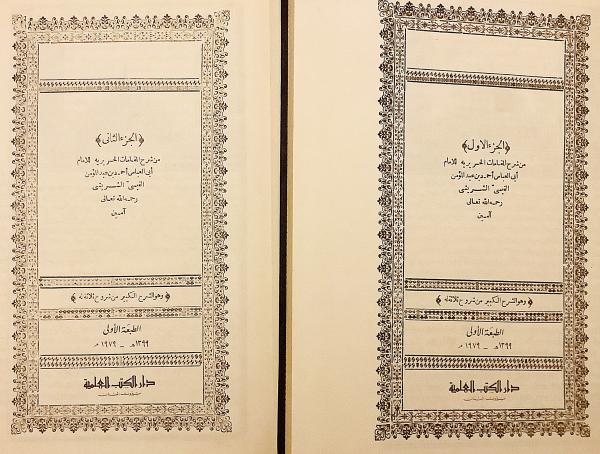 ﴿الجزء الاول﴾
من شرح المقامات الحريرية للامام
أبى العباس أحمد بن عبد المؤمن
القيسى الشريشى
رحمه الله تعالى
آمين
﴿وهو الشرح الكبير من شروح ثلاثة له﴾
الطبعة الأولى
١٣٩٩هـ - ١٩٧٩ م
دار الكتب العلمية
﴿الجزء الثانى﴾
من شرح المقامات الحريرية للامام
أبى العباس أحمد بن عبد المؤمن
القيسى الشريشى
رحمه الله تعالى
آمين
﴿وهو الشرح الكبير من شروح ثلاثة له﴾
الطبعة الأولى
١٣٩٩هـ - ١٩٧٩ م
دار الكتب العلمية